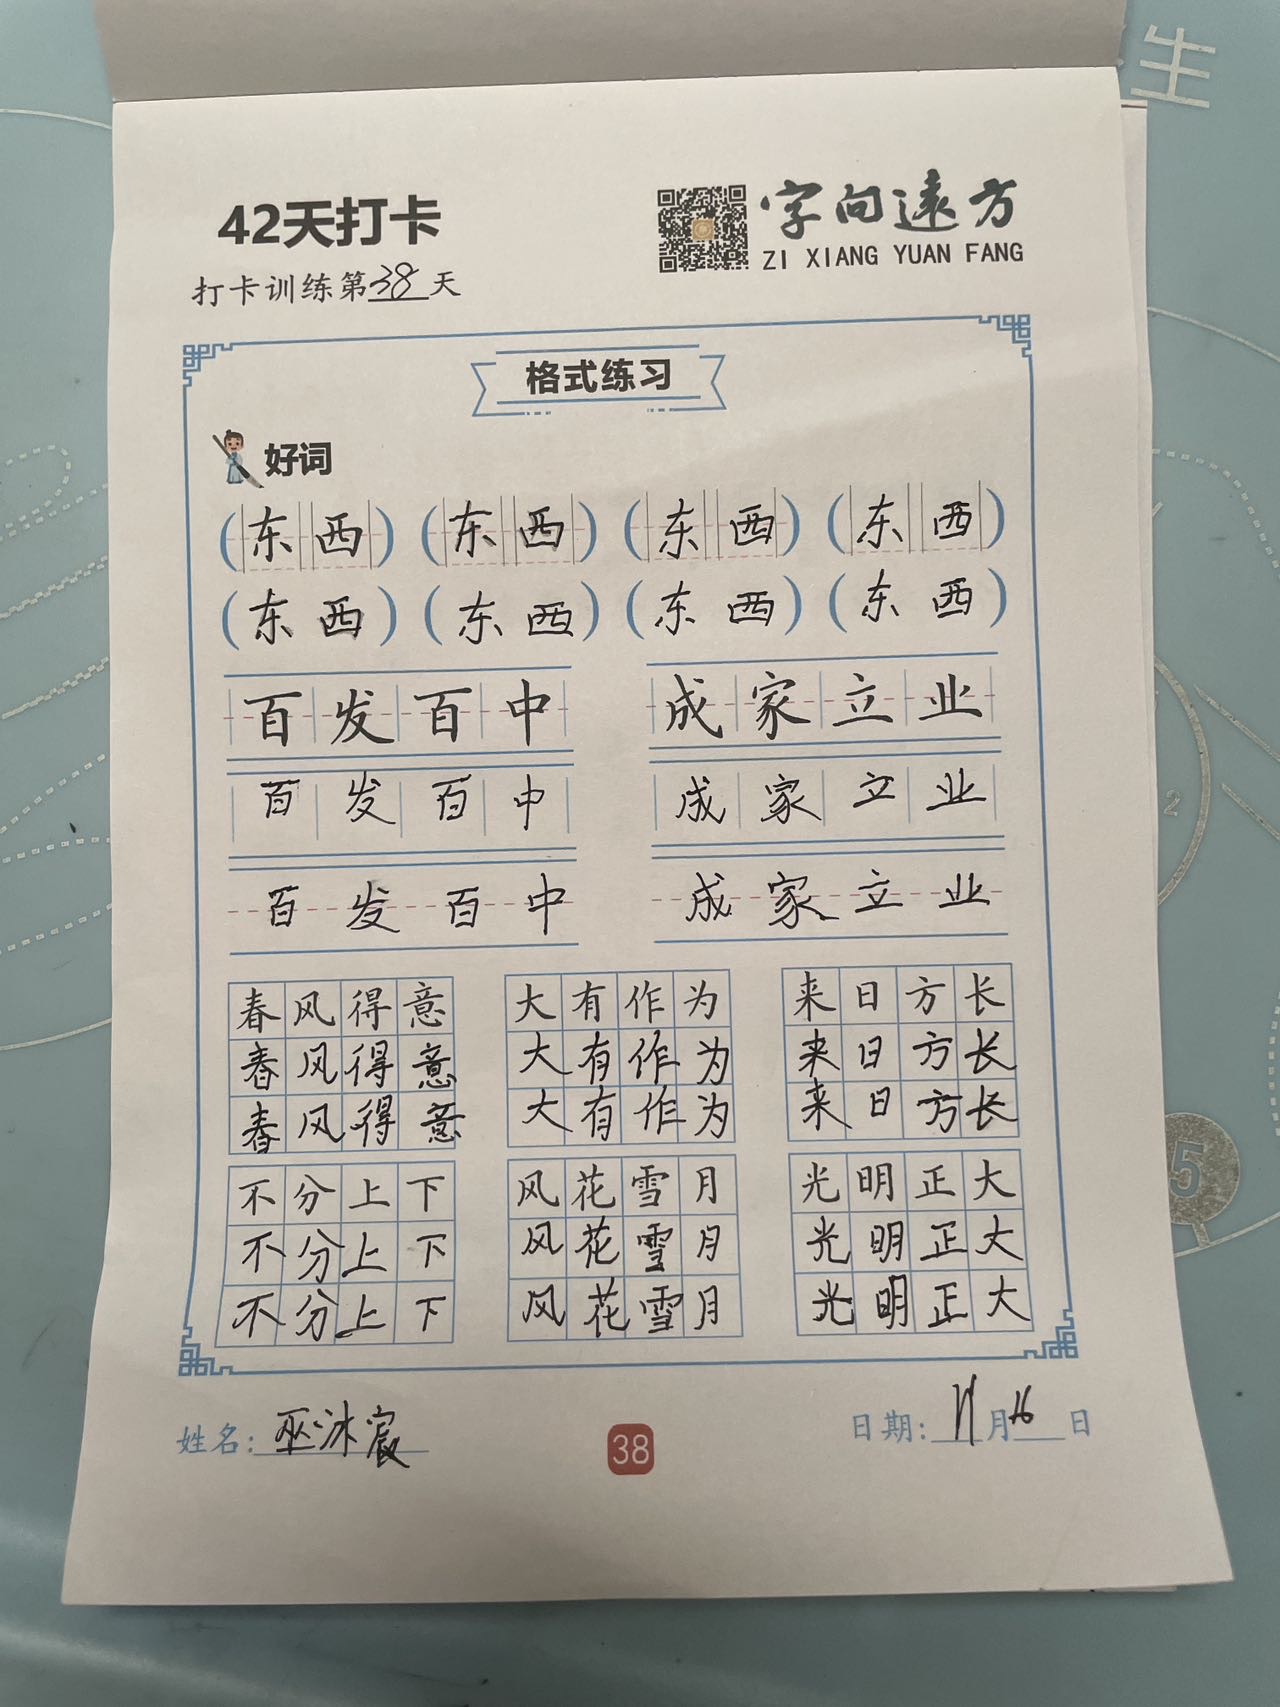 生
42天打卡
字向遠方
ZI XIANG YUAN FANG
打卡训练第38天
格式练习
好词
(东西) (东西) (东西) (东西)
(东西) (东西) (东西) (东西)
百发百中 成家立业
百发百中 成家立业
百发百中 成家立业
春风得意 大有作为 来日方长
春风得意 大有作为 来日方长
春风得意 大有作为 来日方长
不分上下 风花雪月 光明正大
不分上下 风花雪月 光明正大
不分上下 风花雪月 光明正大
姓名:巫冰宸 38 日期:11月16日
2
5